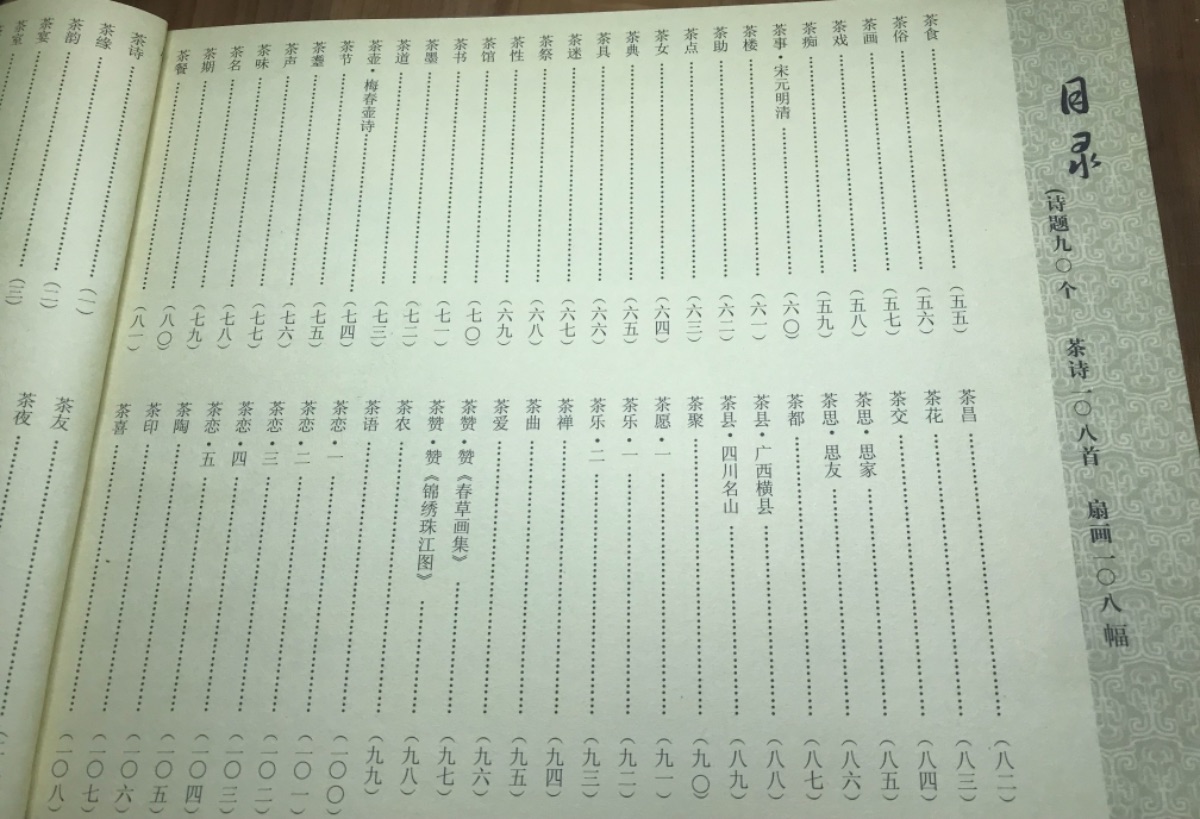 目录
(诗题九〇个 茶诗一〇八首 扇画一〇八幅
茶食……(五五)
茶俗……(五六)
茶画……(五七)
茶戏……(五八)
茶痴……(五九)
茶事·宋元明清……(六〇)
茶楼……(六一)
茶助……(六二)
茶点……(六三)
茶女……(六四)
茶典……(六五)
茶具……(六六)
茶迷……(六七)
茶祭……(六八)
茶性……(六九)
茶馆……(七〇)
茶书……(七一)
茶墨……(七二)
茶道……(七三)
茶壶·梅春壶诗……(七四)
茶节……(七五)
茶耋……(七六)
茶声……(七七)
茶味……(七八)
茶名……(七九)
茶期……(八〇)
茶餐……(八一)
茶昌……(八二)
茶花……(八三)
茶交……(八四)
茶思·思家……(八五)
茶思·思友……(八六)
茶都……(八七)
茶县·广西横县……(八八)
茶县·四川名山……(八九)
茶聚……(九〇)
茶愿·一……(九一)
茶乐·一……(九二)
茶乐·二……(九三)
茶禅……(九四)
茶曲……(九五)
茶爱……(九六)
茶赞·赞《春草画集》……(九七)
茶赞·赞《锦绣珠江图》……(九八)
茶农……(九九)
茶语……(一〇〇)
茶恋·一……(一〇一)
茶恋·二……(一〇二)
茶恋·三……(一〇三)
茶恋·四……(一〇四)
茶恋·五……(一〇五)
茶陶……(一〇六)
茶印……(一〇七)
茶喜……(一〇八)
茶诗……(一)
茶缘……(二)
茶韵……(三)
茶宴
茶室
茶友
茶夜